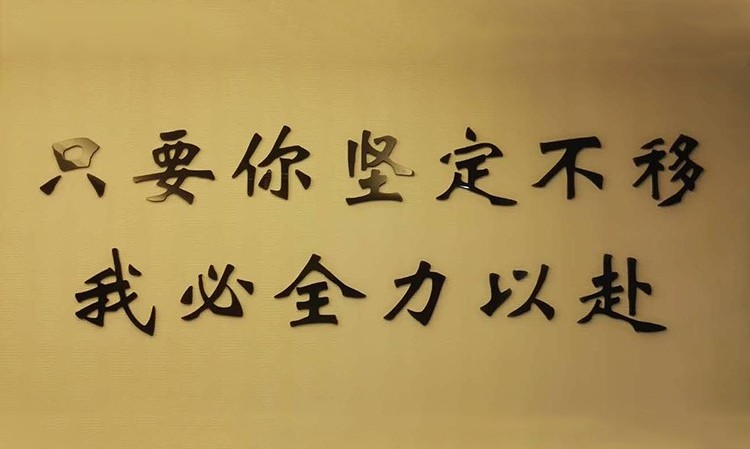 只要你坚定不移
我必全力以赴